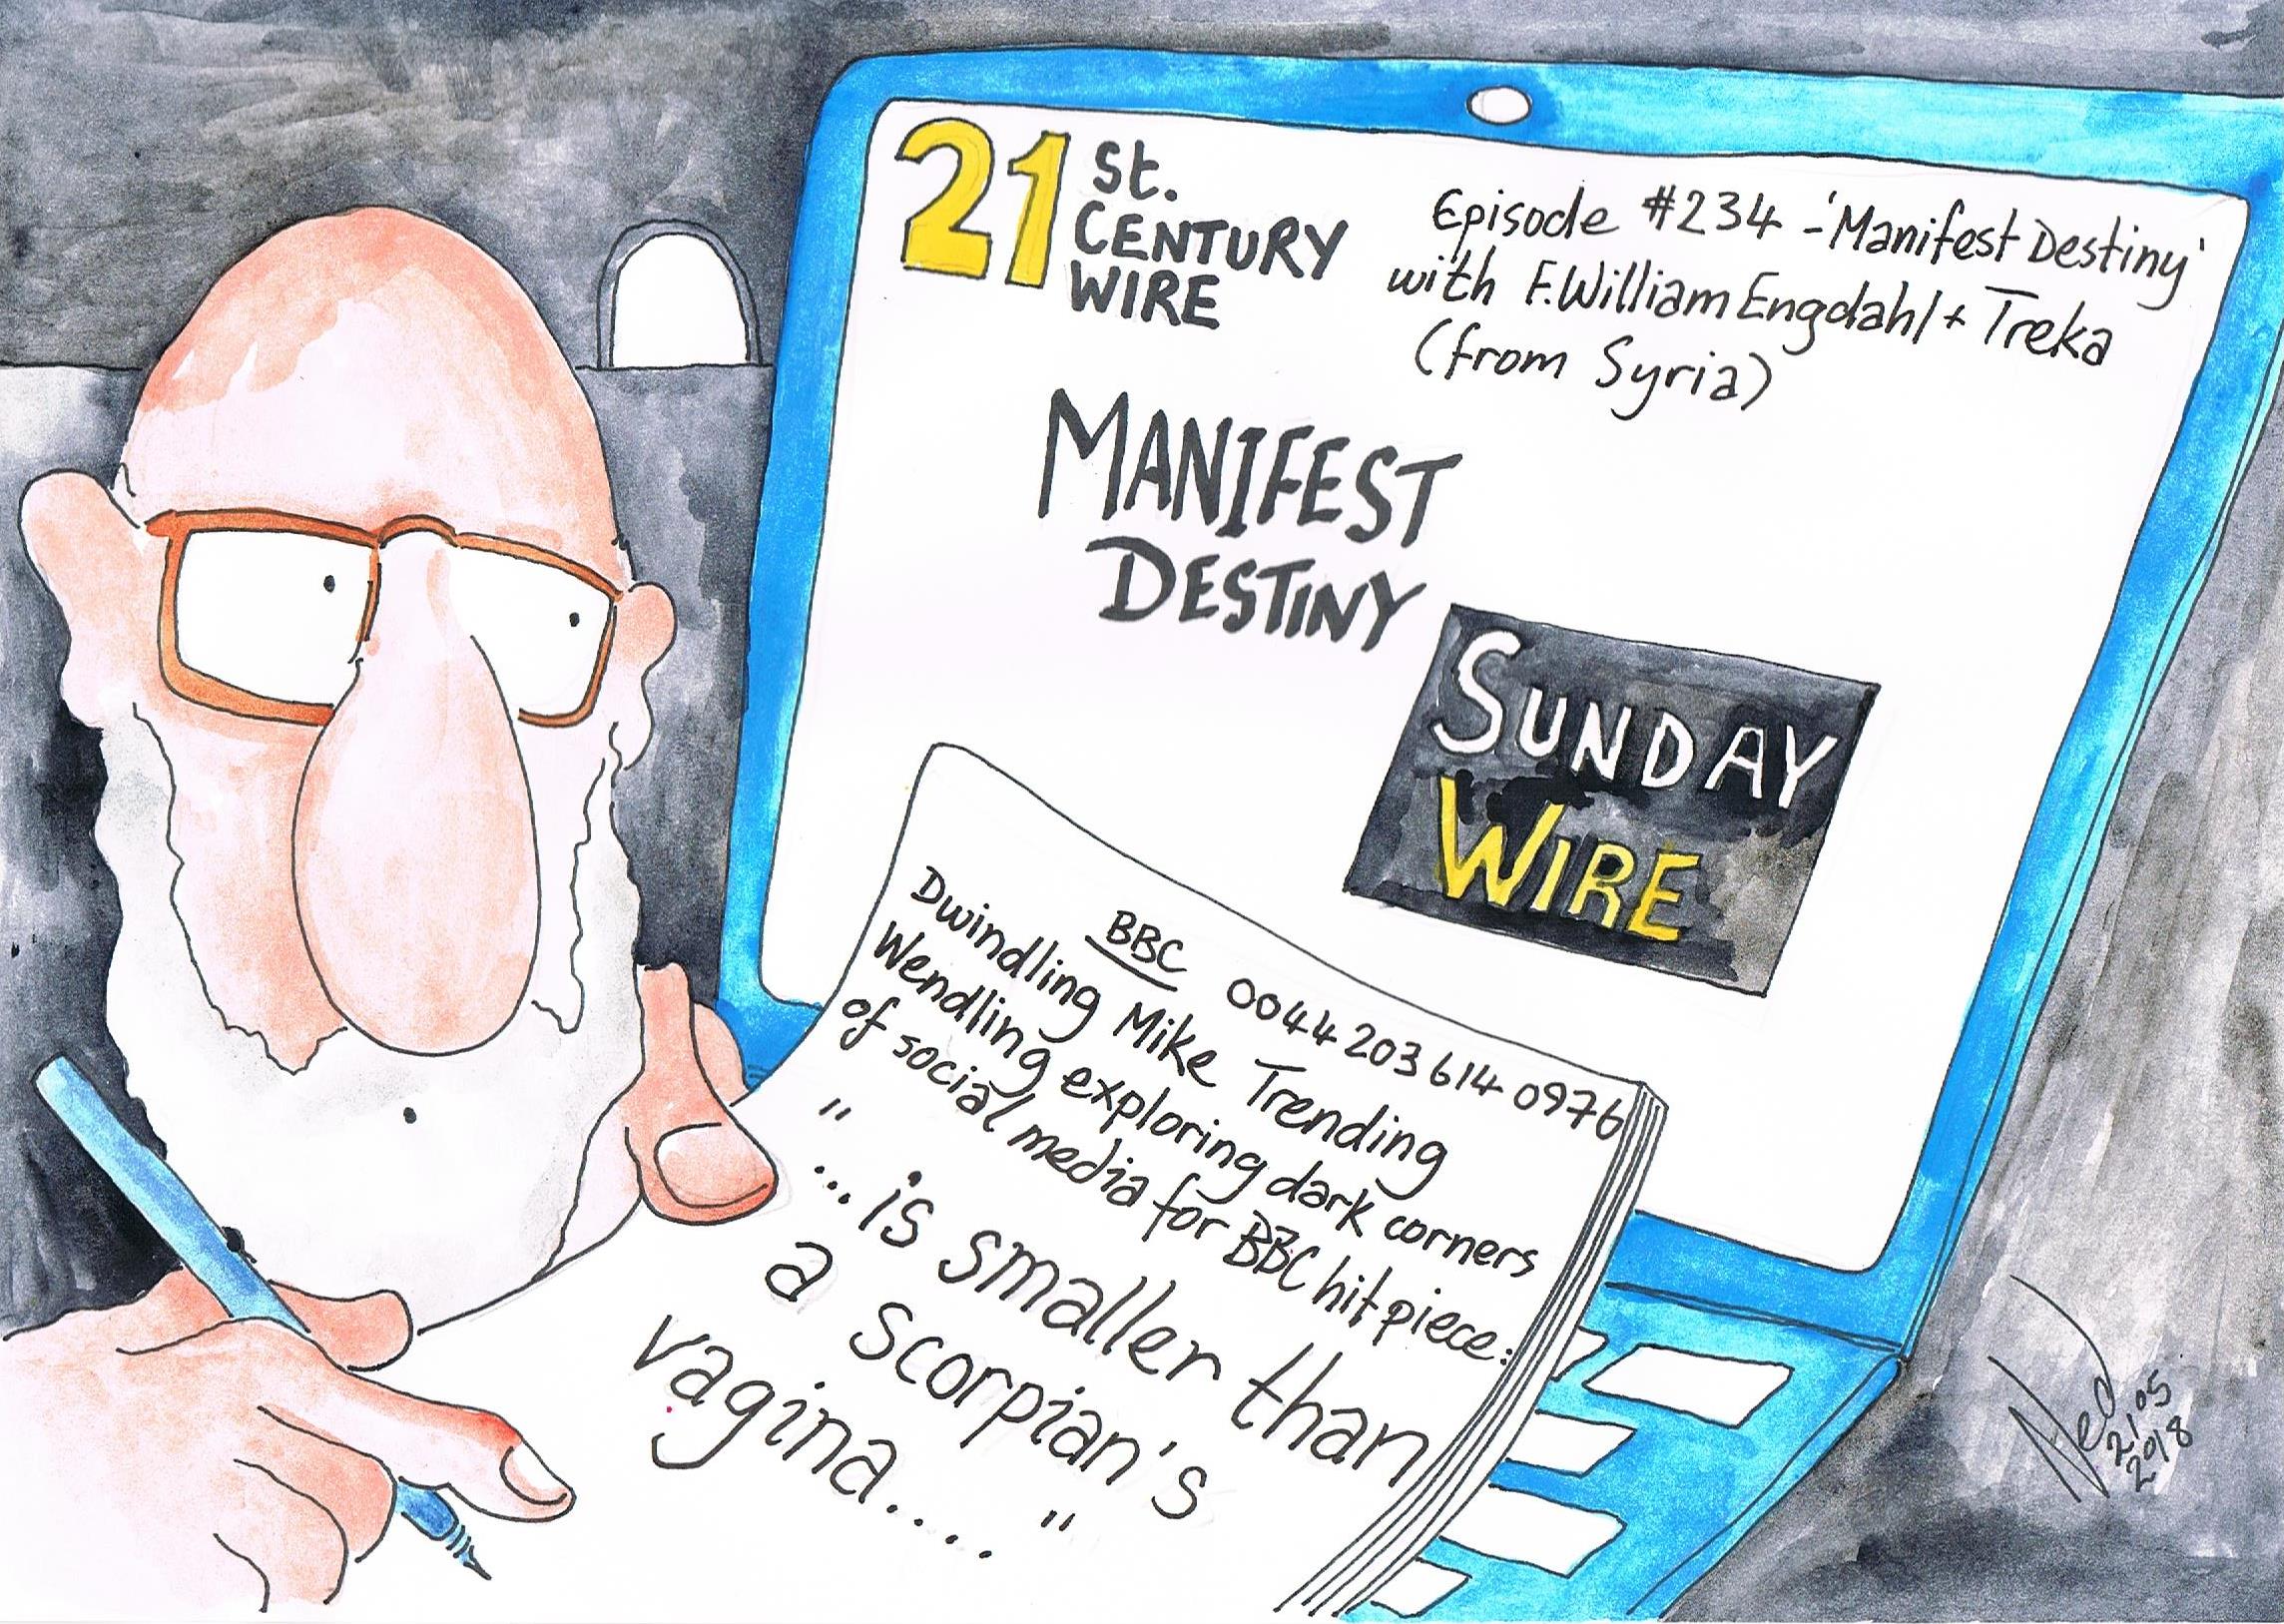 21 st.
CENTURY
WIRE
Episode #234 - 'Manifest Destiny'
with F. William Engdahl + Treka
(from Syria)
MANIFEST
DESTINY
SUNDAY
WIRE
BBC 0044 203 614 0976
Dwindling Mike Trending
Wendling exploring dark corners
of social media for BBC hit piece:
"
...is smaller than
a scorpian's
vagina.... "
Ned
21/05
2018